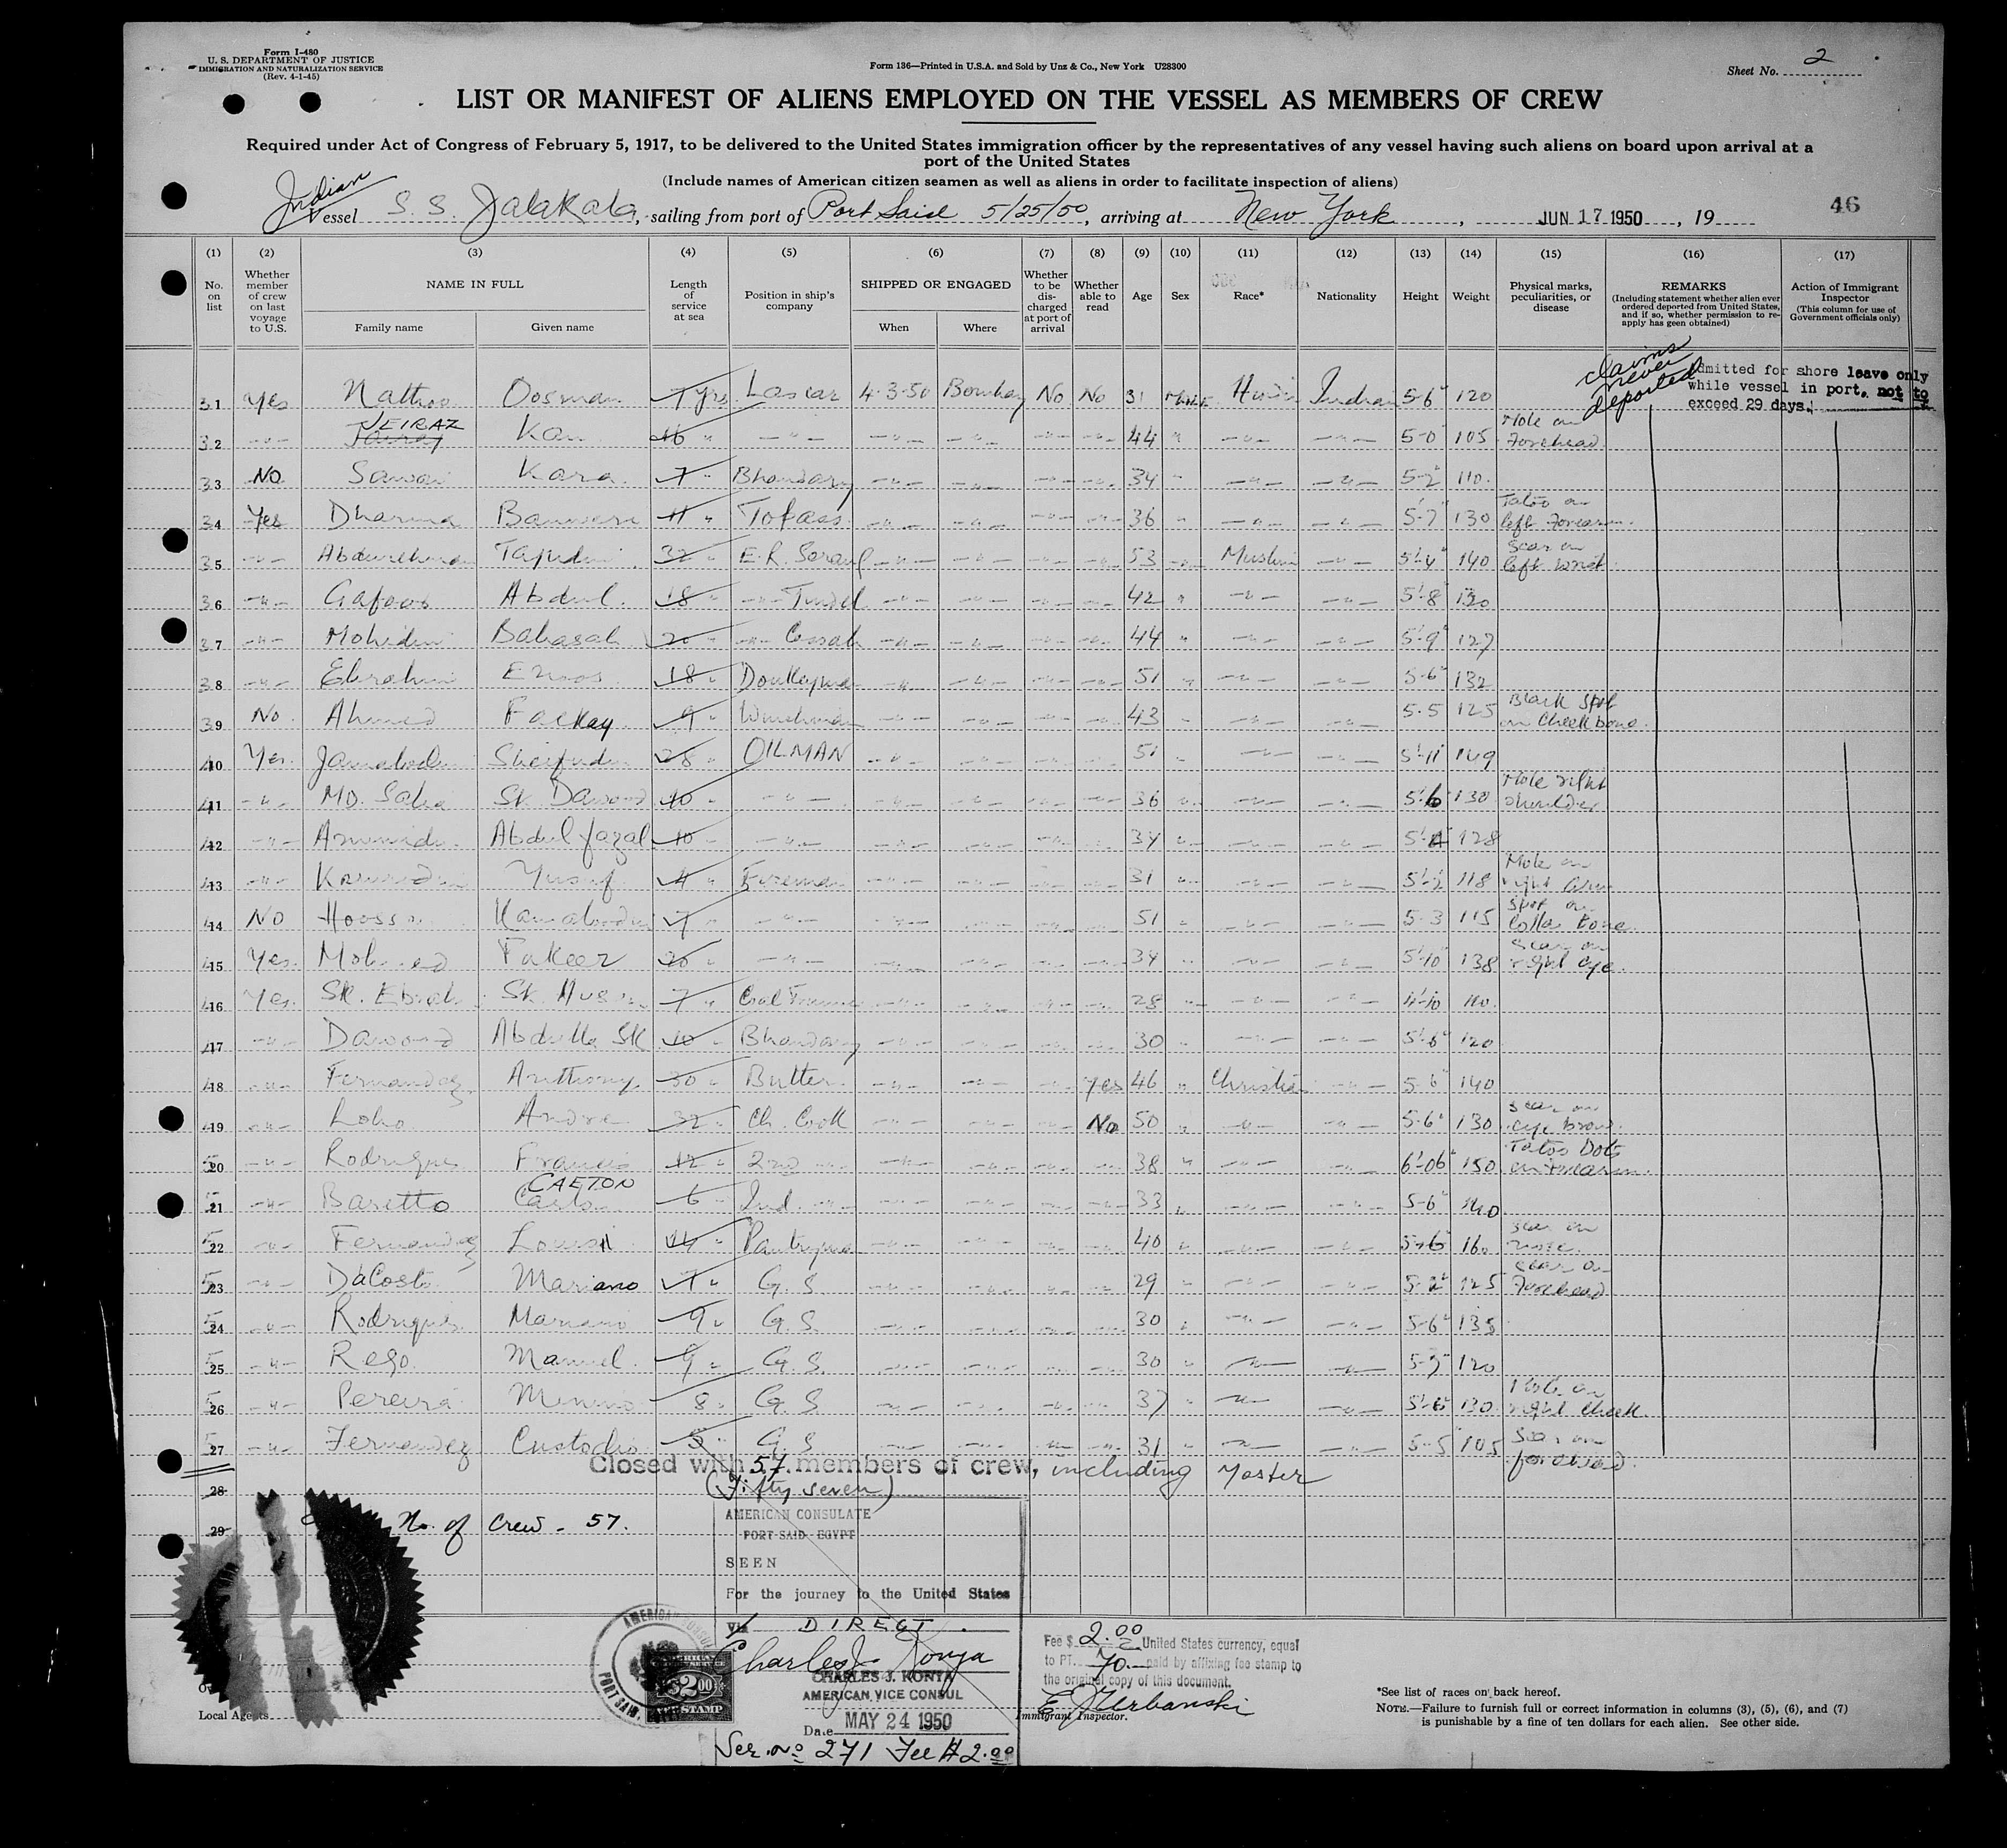 Form I-480
U. S. DEPARTMENT OF JUSTICE
IMMIGRATION AND NATURALIZATION SERVICE
(Rev. 4-1-45)
Form 136—Printed in U.S.A. and Sold by Unz & Co., New York U28300
Sheet No. 2
LIST OR MANIFEST OF ALIENS EMPLOYED ON THE VESSEL AS MEMBERS OF CREW
Required under Act of Congress of February 5, 1917, to be delivered to the United States immigration officer by the representatives of any vessel having such aliens on board upon arrival at a
port of the United States
(Include names of American citizen seamen as well as aliens in order to facilitate inspection of aliens)
Indian
Vessel S. S. Jalakala, sailing from port of Port Said 5/25/50, arriving at New York, JUN 17 1950, 19
46
(1) (2) (3) (4) (5) (6) (7) (8) (9) (10) (11) (12) (13) (14) (15) (16) (17)
No. on list
Whether member of crew on last voyage to U.S.
NAME IN FULL
Family name Given name
Length of service at sea
Position in ship's company
SHIPPED OR ENGAGED
When Where
Whether to be discharged at port of arrival
Whether able to read
Age Sex Race* Nationality Height Weight
Physical marks, peculiarities, or disease
REMARKS
(Including statement whether alien ever ordered deported from United States, and if so, whether permission to re-apply has geen obtained)
Action of Immigrant Inspector
(This column for use of Government officials only)
claims never deported
admitted for shore leave only
while vessel in port, not to
exceed 29 days.
31 Yes Nathoo Oosman 7 yrs Lascar 4-3-50 Bombay No No 31 Male Hindu Indian 5-6" 120
32 -"- JEIRAZ Kan 16 " -"- -"- -"- -"- -"- 44 " -"- -"- 5-0" 105 Mole on Forehead
33 No Kara 7 " Bhandary -"- -"- -"- -"- 34 " -"- -"- 5-2" 110
34 Yes Dharma 11 " Topass -"- -"- -"- -"- 36 " -"- -"- 5-7" 130 Tatoo on left Forearm
35 -"- 32 " E. R. Serang -"- -"- -"- -"- 53 -"- Muslim -"- 5'-4" 140 Scar on left wrist
36 -"- Gafoor Abdul 18 " -"- Tindel -"- -"- -"- -"- 42 " -"- -"- 5'-8" 130
37 -"- Mohidin Babasah 20 " -"- Cassab -"- -"- -"- -"- 44 " -"- -"- 5'-9" 127
38 -"- Ebrahim Enoos 18 " Donkeyman -"- -"- -"- -"- 51 " -"- -"- 5-6" 132
39 No Ahmed Fackay 9 " Winchman -"- -"- -"- -"- 43 " -"- -"- 5-5 125 Black Spot on Cheek bone
40 Yes 28 " OILMAN -"- -"- -"- -"- 51 " -"- -"- 5'-11" 149
41 -"- MD. Saba Sk. Dawood 10 " -"- -"- -"- -"- -"- 36 " -"- -"- 5'6 130 Mole right shoulder
42 -"- Abdul fazal 10 " -"- -"- -"- 34 " -"- -"- 5'-4" 128
43 -"- Yusuf 4 " Fireman -"- -"- -"- -"- 31 " -"- -"- 5'-2" 118 Mole on right Arm
44 No 7 " -"- -"- -"- -"- -"- 51 " -"- -"- 5-3 115 Spot on Collar Bone
45 Yes Mohamed Fakeer 20 " -"- -"- -"- -"- -"- 34 " -"- -"- 5'-10" 138 Scar on right eye.
46 Yes 7 " Coal Trimmer -"- -"- -"- -"- 28 " -"- -"- 4'-10 110
47 -"- Dawood Abdulla SK 10 " Bhandary -"- -"- -"- -"- 30 " -"- -"- 5'-6" 120
48 -"- Fernandez Anthony 30 " Butler -"- -"- -"- Yes 46 " Christian -"- 5-6" 140
49 -"- Lobo Andre 32 " Ch. Cook -"- -"- -"- No 50 " -"- -"- 5-6" 130 Scar on eye brow
50 -"- Rodrigues Francis 12 " 2nd -"- -"- -"- -"- -"- 38 " -"- -"- 6'-06" 150 Tatoo Dots on Forearm
51 -"- Baretto CAETON 6 " -"- -"- -"- -"- 33 " -"- -"- 5-6" 140
52 -"- Fernandez Louis 14 " Pantryman -"- -"- -"- -"- 40 " -"- -"- 5-6" 160 Scar on nose
53 -"- DaCosta Mariano 7 " G. S -"- -"- -"- -"- 29 " -"- -"- 5-2" 125 Scar on Forehead
54 -"- Rodrigues Mariano 9 " G. S. -"- -"- -"- -"- 30 " -"- -"- 5-6" 135
55 -"- Rego Manuel 9 " G. S. -"- -"- -"- -"- 30 " -"- -"- 5-7" 120
56 -"- Pereira Menino 8 " G. S -"- -"- -"- -"- 37 " -"- -"- 5'-6" 130 Mole on right cheek
57 -"- Fernandez Custodio 5 " G. S -"- -"- -"- -"- 31 " -"- -"- 5-5" 105 Scar on forehead
Closed with 57 members of crew, including Master
(Fifty seven)
28
29
No. of Crew - 57.
AMERICAN CONSULATE
PORT SAID EGYPT
SEEN
For the journey to the United States
Via DIRECT
Charles J. Konya
CHARLES J. KONYA
AMERICAN VICE CONSUL
Date MAY 24 1950
Ser. No 271 Fee $2.00
$2.00
FEE STAMP
Fee $ 2.00 United States currency, equal
to PT. 70.— paid by affixing fee stamp to
the original copy of this document.
E J Urbanski
Immigrant Inspector.
Local Agents
*See list of races on back hereof.
NOTE.—Failure to furnish full or correct information in columns (3), (5), (6), and (7)
is punishable by a fine of ten dollars for each alien. See other side.